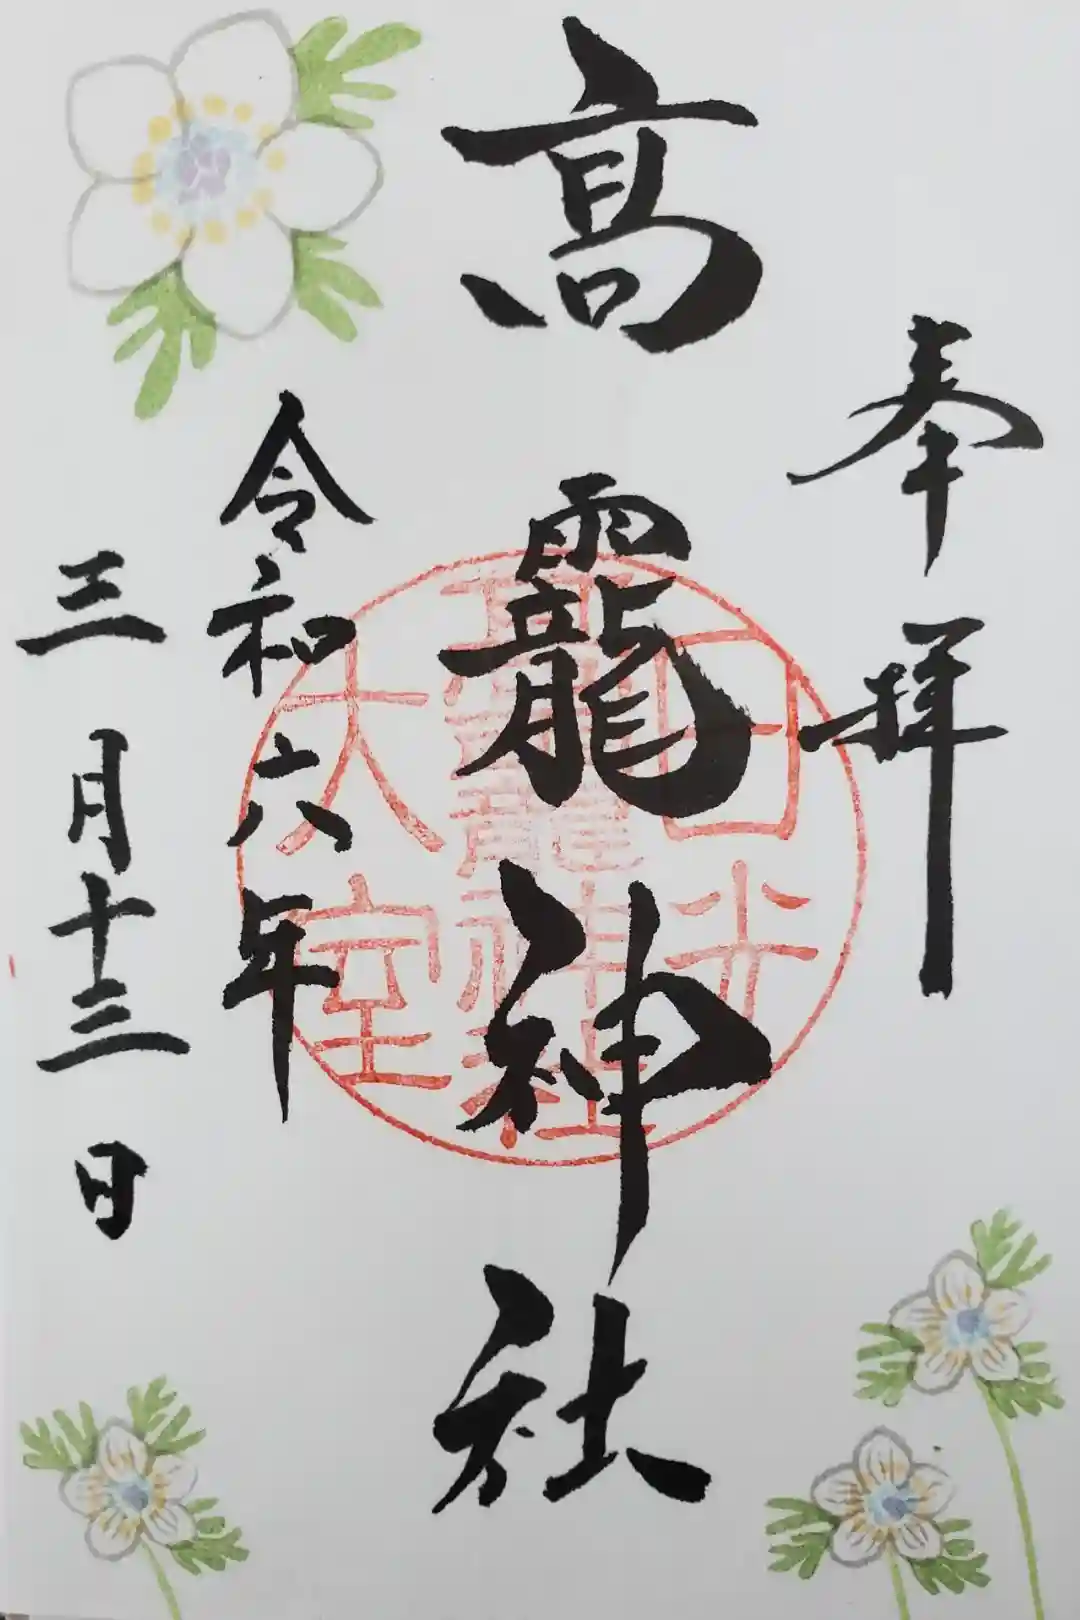 奉拝
高龗神社
日光
高龗神社
大室
令和六年
三月十三日